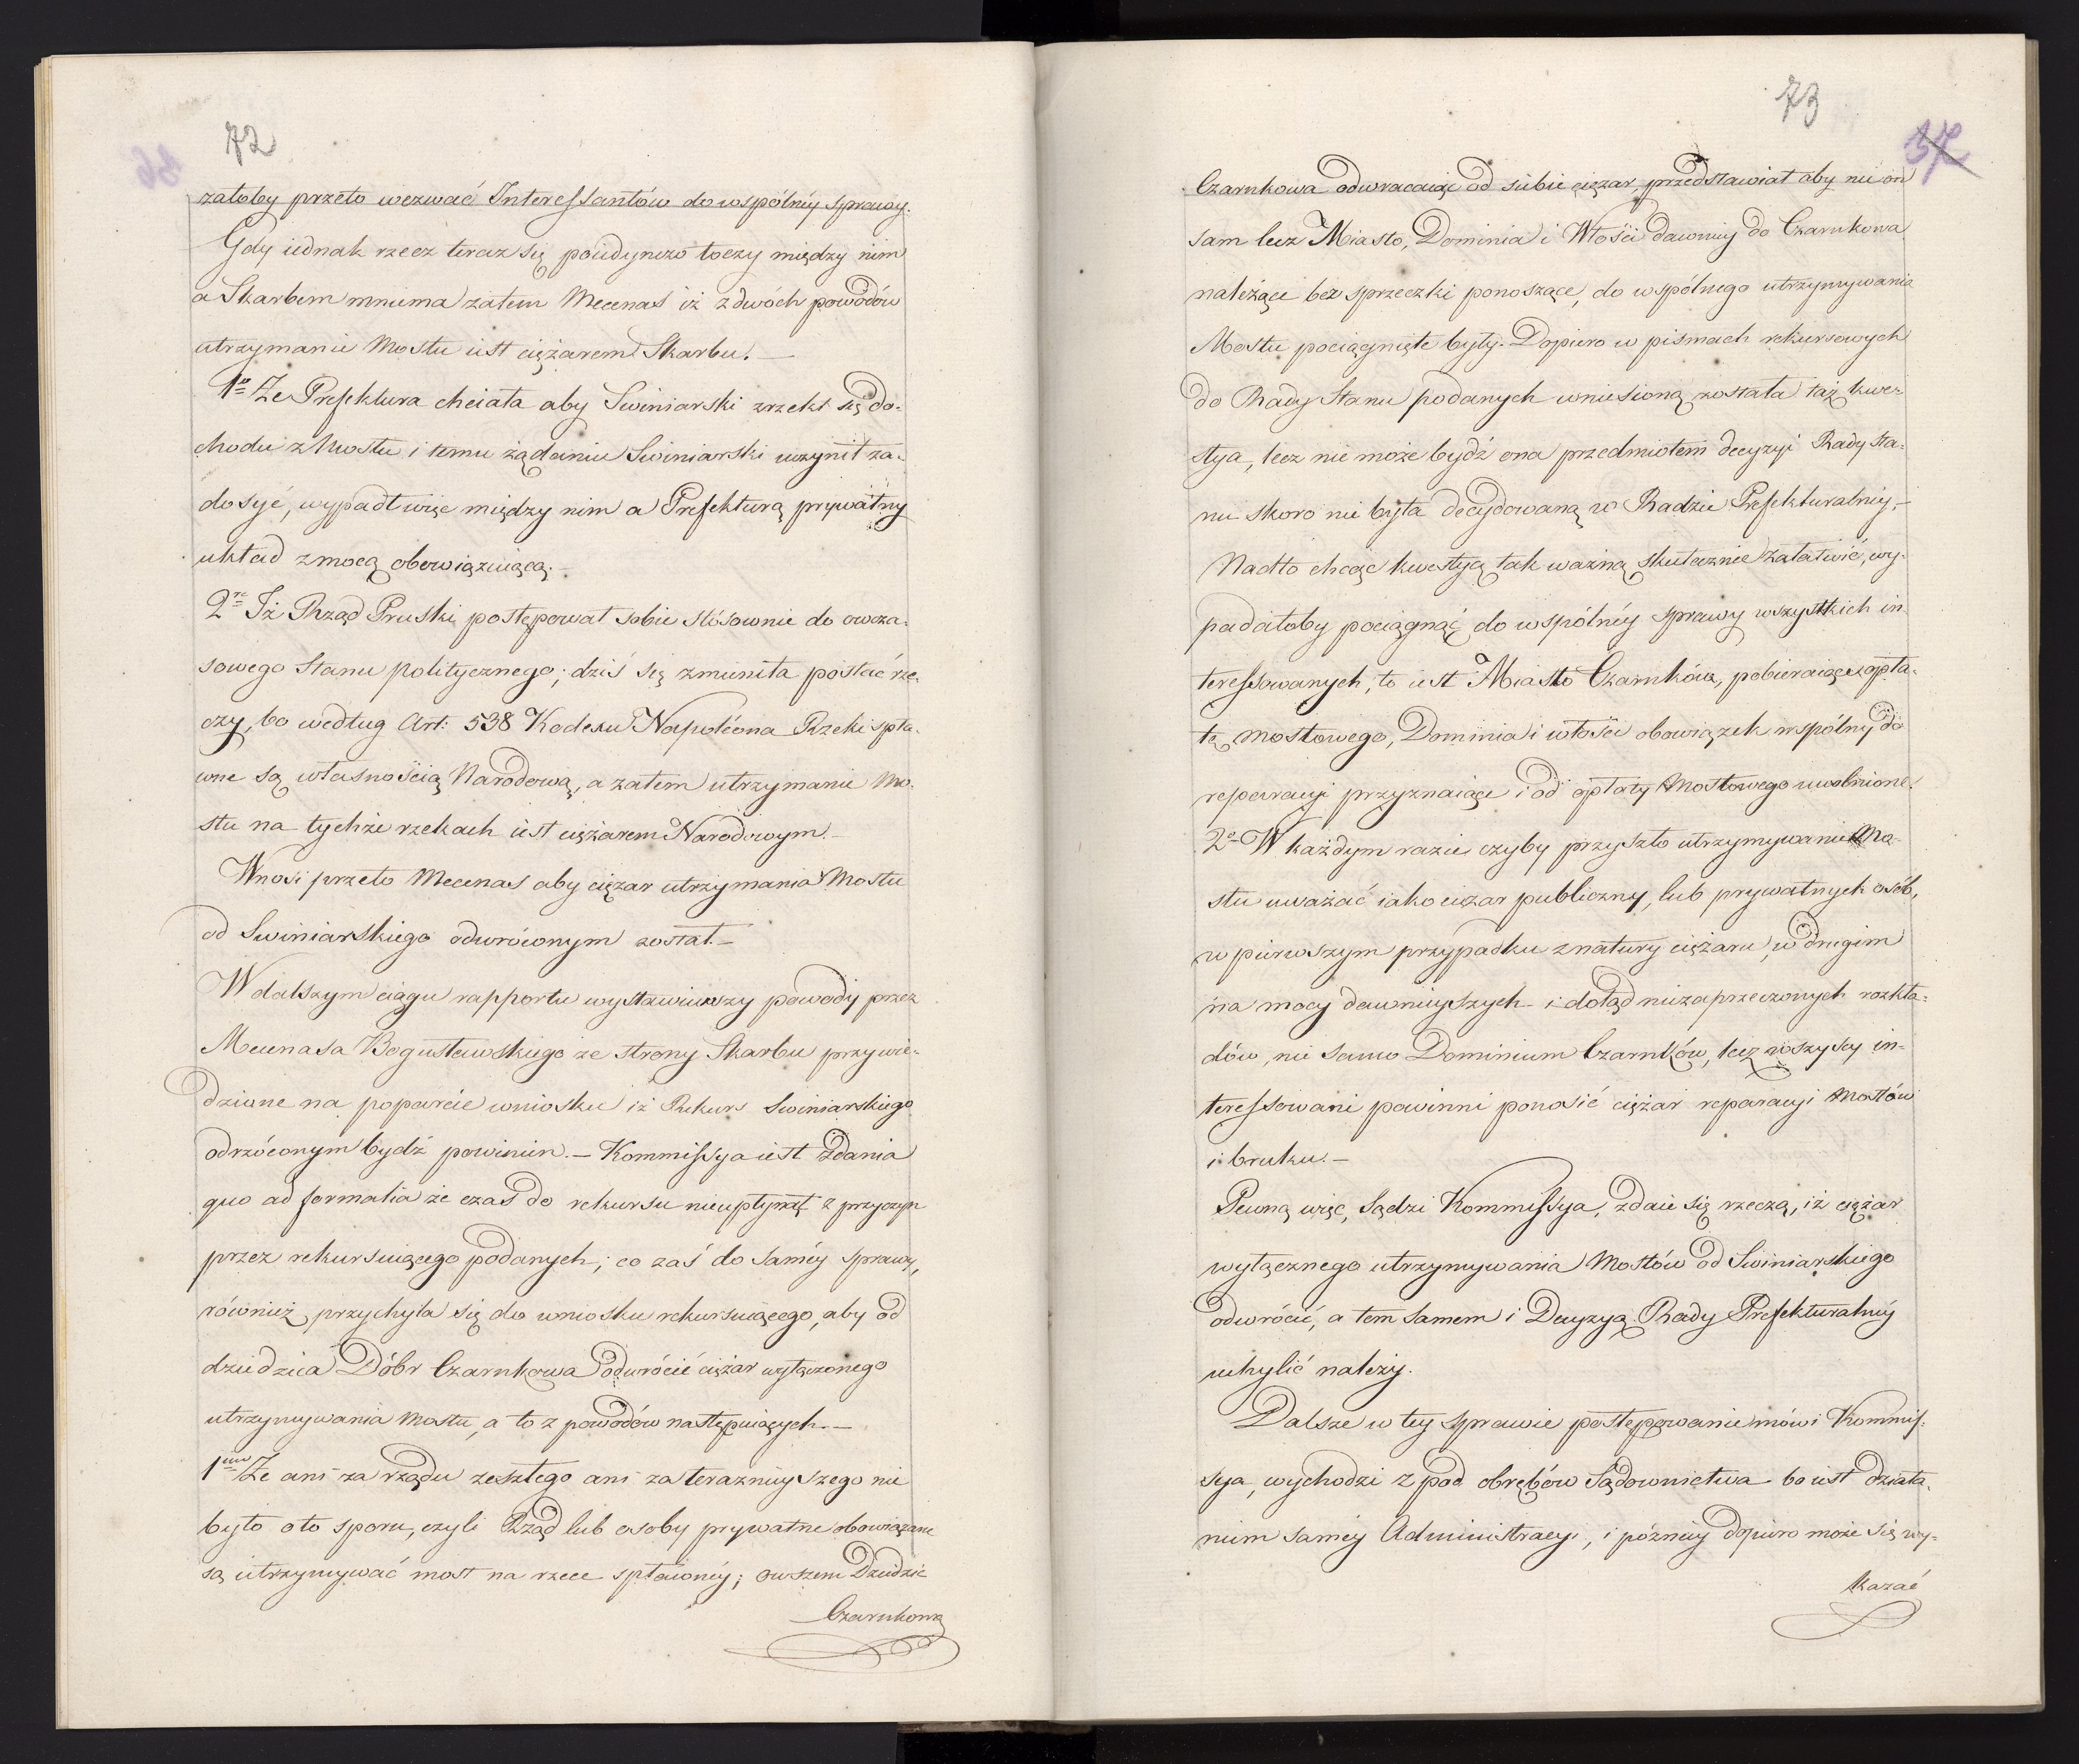 72
załoby przeto wezwać Interessantów do wspólnéy sprawy.
Gdy iednak rzecz teraz się poiedynczo toczy między nim
a Skarbem mniema zatem Mecenas iż z dwóch powodów
utrzymanie Mostu iest ciężarem Skarbu. —
1o Ze Prefektura chciała aby Swiniarski zrzekł się do-
chodu z Mostu i temu żądaniu Swiniarski uczynił za-
dosyć, wypadł więc między nim a Prefekturą prywatny
układ z mocą obowiązuiącą. —
2re Iż Rząd Pruski postępował sobie stósownie do owcza-
sowego Stanu politycznego; dziś się zmieniła postać rze-
czy, bo według Art: 538 Kodexu Napoléona Rzeki spła-
wne są własnością Narodową, a zatem utrzymanie Mo-
stu na tychże rzekach iest ciężarem Narodowym. —
Wnosi przeto Mecenas aby ciężar utrzymania Mostu
od Swiniarskiego odwróconym został. —
W dalszym ciągu rapportu wystawiwszy powody przez
Mecenasa Bogusławskiego ze strony Skarbu przywie-
dzione na poparcie wniosku iż Rekurs Swiniarskiego
odrzóconym bydź powinien. — Kommissya iest zdania
quo ad formalia że czas do rekursu nieupłynął z przyczyn
przez rekursuiącego podanych; co zaś do saméy sprawy,
również przychyla się do wniosku rekursuiącego, aby od
dziedzica Dóbr Czarnkowa odwrócić ciężar wyłączonego
utrzymywania Mostu, a to z powodów następuiących. —
1mo Ze ani za rządu zeszłego ani za teraznieyszego nie
było o to sporu, czyli Rząd lub osoby prywatne obowiązane
są utrzymywać most na rzece spławnéy; owszem Dziedzic
Czarnkowa
73
37
Czarnkowa odwracaiąc od siebie ciężar, przedstawiał aby nie on
sam lecz Miasto, Dominia i Włości dawniey do Czarnkowa
należące bez sprzeczki ponoszące, do wspólnego utrzymywania
Mostu pociągnięte były. Dopiero w pismach rekursowych
do Rady Stanu podanych wniesioną została taż kwe-
stya, lecz nie może bydź ona przedmiotem decyzyi Rady Sta-
nu skoro nie była decydowaną w Radzie Prefekturalnéy, —
Nadto chcąc kwestyą tak ważną skutecznie załatwić, wy-
padałoby pociągnąć do wspólnéy sprawy wszystkich in-
teressowanych, to iest Miasto Czarnków, pobieraiące opła-
tę mostowego, Dominia i włości obowiązek wspólny do
reperacyi przyznaiące i od opłaty Mostowego uwolnione.
2o W każdym razie, czyby przyszło utrzymywanie Mo-
stu uważać iako ciężar publiczny, lub prywatnych osób,
w pierwszym przypadku z natury ciężaru, w drugim
na mocy dawnieyszych i dotąd niezaprzeczonych rozkła-
dów, nie samo Dominium Czarnków, lecz wszyscy in-
teressowani powinni ponosić ciężar reparacyi Mostów
i bruku. —
Pewną więc, sądzi Kommissya, zdaie się rzeczą, iż ciężar
wyłącznego utrzymywania Mostów od Swiniarskiego
odwrócić, a tem samem i Decyzyą Rady Prefekturalnéy
uchylić należy.
Dalsze w tey sprawie postępowanie mówi Kommis-
sya, wychodzi z pod obrębów Sądownictwa bo iest działa-
niem saméy Administracyi, i późniey dopiero może się wy-
kazać